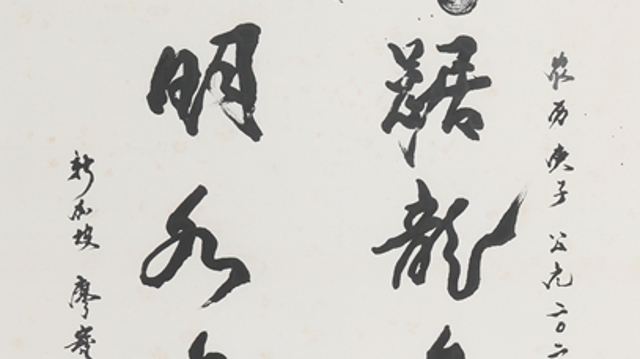 農历庚子 公元二〇二
踞龍
明水
新加坡 廖